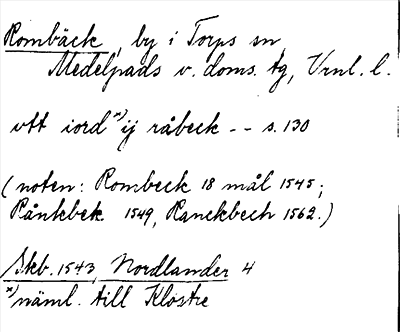 Rombäck, by i Torps sn,
Medelpads v. doms. tg, Vrnl. l.
vtt iord x) ij råbeck -- s. 130
(noten: Rombeck 18 mål 1545;
Rånkbek 1549, Ranckbech 1562.)
Skb. 1543, Nordlander 4
x) näml. till Klostre